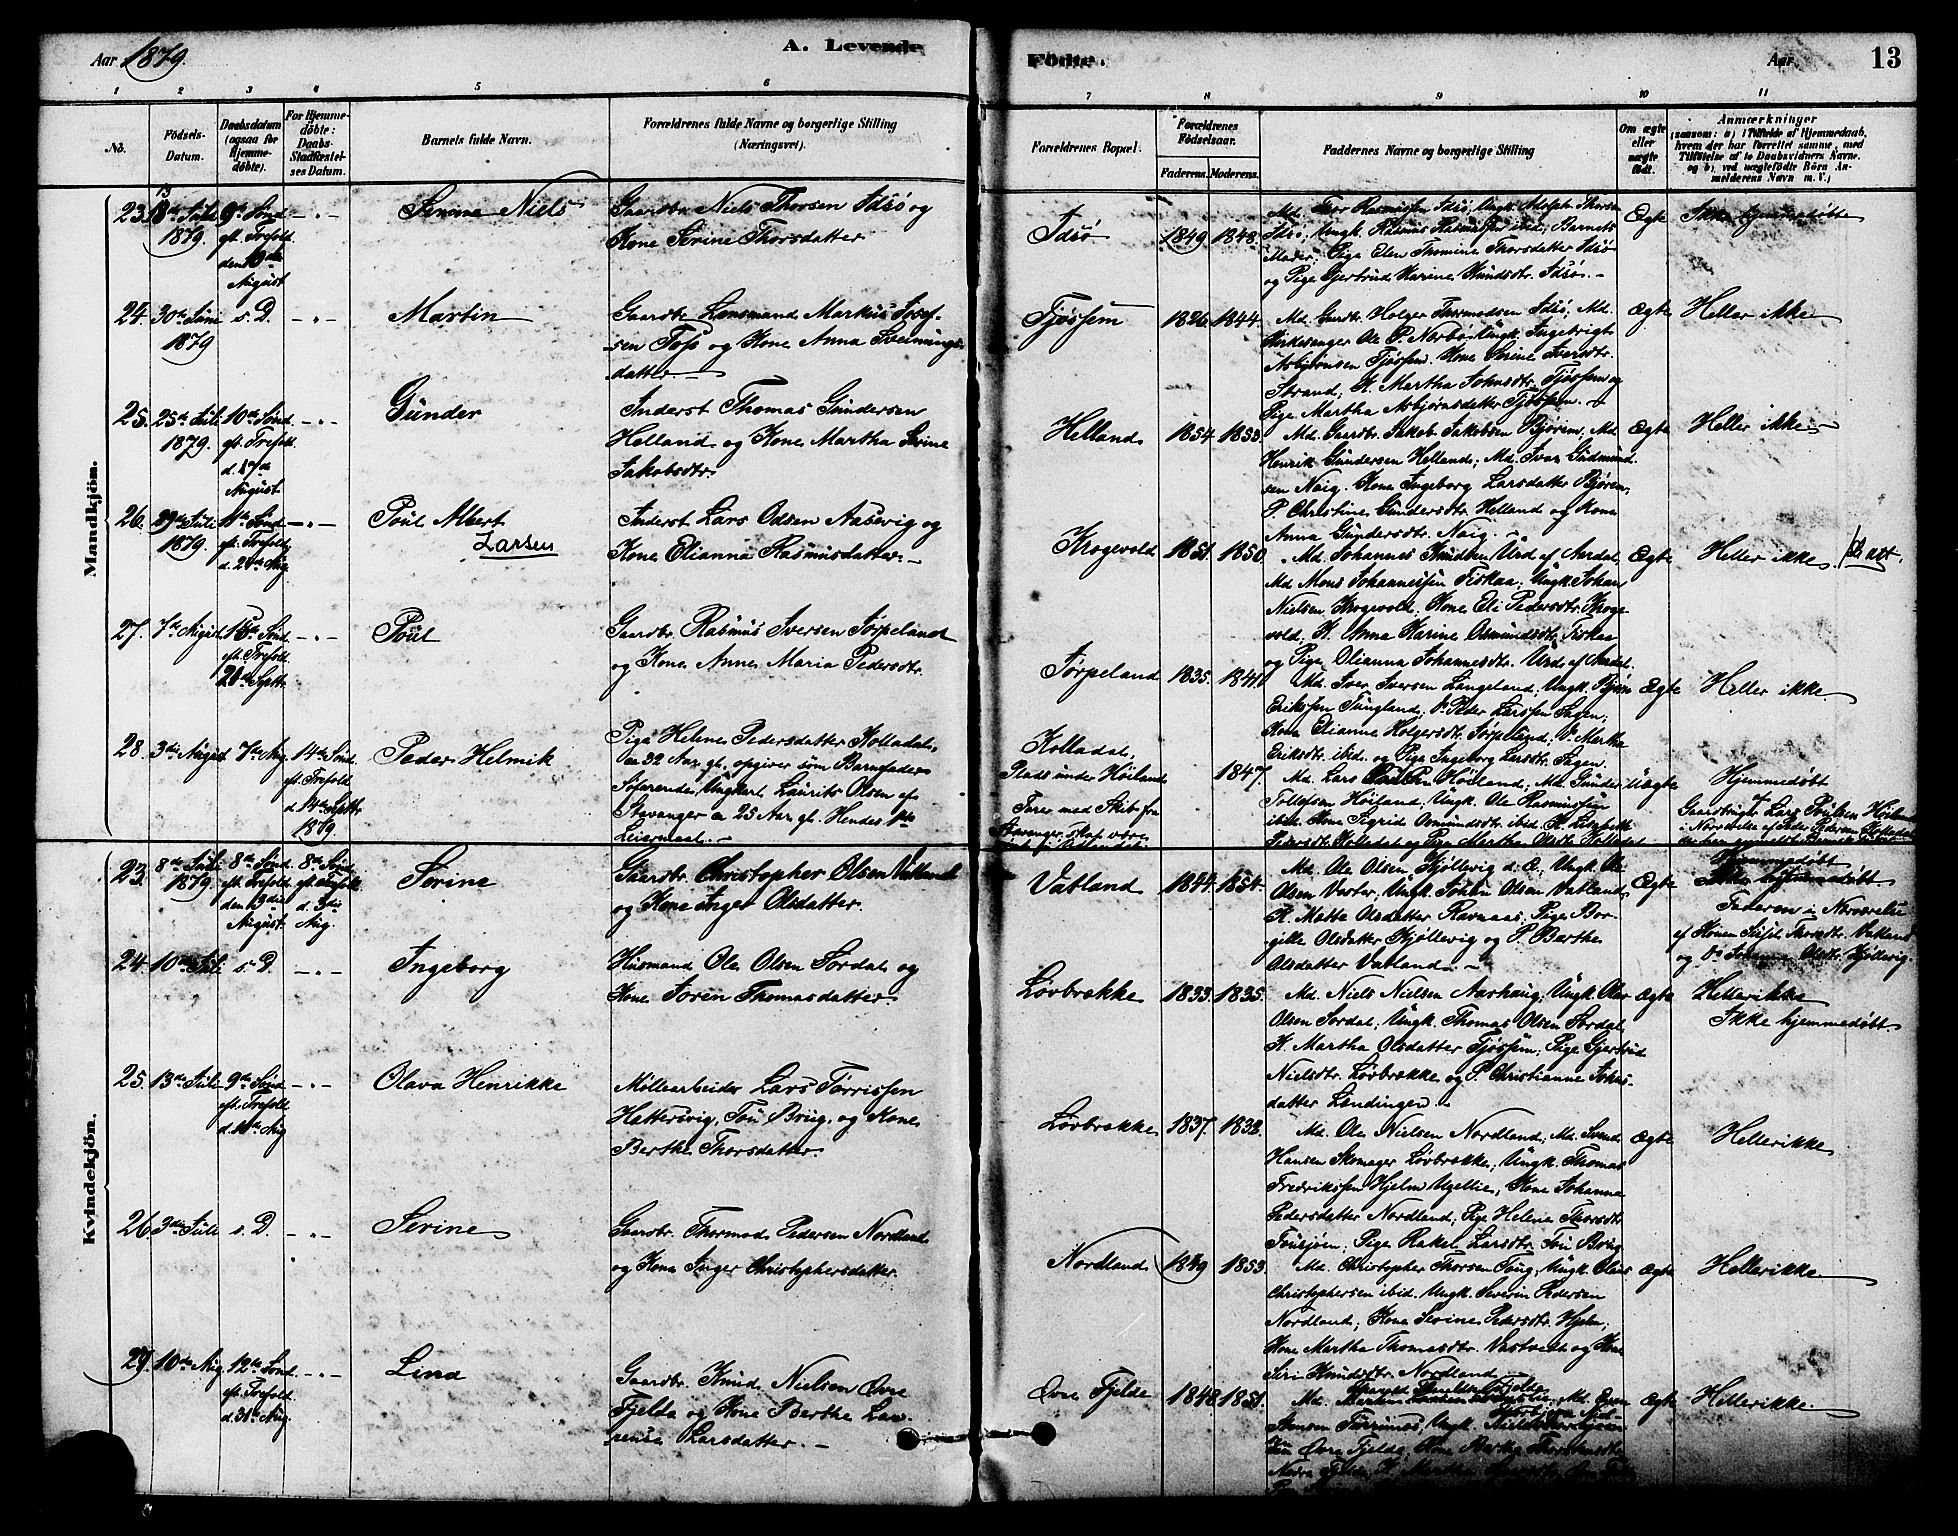 Aar 1879.
A. Levende
Födte.
Aar
13
1 2 3 4 5 6 7 8 9 10 11
No.
Födsels-Datum.
Daabsdatum (ogsaa for Hjemmedöbte).
For Hjemmedöbte: Daabs-Stadfæstelses Datum.
Barnets fulde Navn.
Forældrenes fulde Navne og borgerlige Stilling (Næringsvei).
Forældrenes Bopæl.
Forældrenes Födselsaar.
Faderens. Moderens.
Faddernes Navne og borgerlige Stilling
Om ægte eller uægte födt.
Anmærkninger
(saasom: a) i Tilfælde af Hjemmedaab, hvem der har forrettet samme, med Tilföielse af to Daabsvidners Navne. og b) ved uægtefödte Börn Anmelderens Navn m. V.)
Mandkjön.
23. 1879. 9de Sönd. eft. Trefold. den August
Niels
Gaardbr. Niels Thorsen Idsö og
Kone Serine Thorsdatter
Idsö
1849 1848.
Md. Thor Rasmussen Idsö; Ungk. Thorsen
Idsö; Ungk. Rasmus Rasmussen ibid; Barnets
Moder; Pige Elen Thomine Thorsdatter Idsö
og Pige Gjertrud Karine Knudsdtr. Idsö.-
Ægte
Ikke hjemmedöbt
24. 30te Juni 1879
s. D.
Martin
Gaardbr. Lensmand Markus Josef-
sen Foss og Kone Anna Sveinungs-
datter.
Tjössem
1826 1844.
Md. Gaardbr. Holger Thormodsen Idsö, Md.
Kirkesanger Ole P. Norbö, Ungk. Ingebrigt
Asbjörnsen Tjössem. Kone Serine Iversdtr.
Strand, K. Martha Johnsdtr. Tjössem og
Pige Martha Asbjörnsdatter Tjössem.
Ægte
Heller ikke
25. 25de Juli 1879.
10de Sönd. eft. Trefold. d. 17de August
Gunder
Inderst Thomas Gundersen
Helland og Kone Martha Serine
Jakobsdtr.
Helland
1854. 1853.
Md. Gaardbr. Jakob Jakobsen Björem; Md.
Henrik Gundersen Helland; Md. Ivar Gudmund-
sen Naig. Kone Ingeborg Larsdatter Björem,
P. Christine Gundersdtr. Helland og Kone
Anna Gundersdtr. Naig.
Ægte
Heller ikke
26. 29de Juli 1879.
11te Sönd. eft. Trefold. d. 24de Aug.
Poul Albert
Larsen
Inderst Lars Odsen Aasevig og
Kone Elianna Rasmusdatter.
Krogevold
1851. 1850.
Md. Johannes Knudsen Urd af Aardal,
Md. Mons Johannessen Fiskaa; Ungk. Johan
Nielsen Krogevold; Kone Eli Pedersdtr. Kroge-
vold; K. Anna Karine Osmundsdtr. Fiskaa
og Pige Olianna Johannesdtr. Urd af Aardal.
Ægte
Heller ikke
Att.
27. 7de August
Sönd. eft. Trefold. Septr.
Poul
Gaardbr. Rasmus Iversen Jørpeland
og Kone Anne Maria Pedersdtr.
Jørpeland
1835. 1841.
Md. Iver Iversen Langeland; Ungk. Björn
Eriksen Tungland; Do. Peder Larssen Fagen;
Kone Elianne Holgersdtr. Jørpeland; Do. Martha
Eriksdtr. ibid. og Pige Ingeborg Larsdtr. Fagen.
Ægte
Heller ikke
28. 3die August
7de Aug.
14de Sönd. eft. Trefold. d. 14de Septr. 1879.
Peder Helmik
Pige Helene Pedersdatter Kolladal,
32 Aar gl. opgiver som Barnfader
Söfarende, Ungkarl Laurits Olsen af
Stavanger ca 25 Aar gl. Hendes
Leiermaal.
Kolladal,
Plads under Höiland
Farer med Skib fra
Stavanger
1847.
Md. Lars Poulsen Höiland; Md. Gunder
Tollefsen Höiland; Ungk. Ole Rasmussen
ibid. Kone Sigrid Osmundsdtr. ibid. K. Lisabeth
Pedersdtr. Kolladal og Pige Martha Olsdtr. Kolladal
Uægte
Hjemmedöbt
af
Gaardbruger Lars Poulsen Höiland
i Nærværelse af Peder Pedersen Kolladal
Kvindekjön.
23. 8de Juli 1879.
8de Sönd. eft. Trefold. den 3die August
8de Sönd. eft. Trefold. d. 3die Aug.
Serine
Gaardbr. Christopher Olsen Vatland
og Kone Inger Olsdatter.
Vatland
1844. 1854.
Md. Ole Olsen Kjöllevig d. Æ; Ungk. Ole
Olsen Vaster; Ungk. Olsen Vatland,
K. Mette Olsdatter Ravnaas, Pige Bor-
gille Olsdatter Kjöllevig og P. Berthe
Olsdatter Vatland.
Ægte
Hjemmedöbt
Faderen i Nærværelse
af Konen Vatland
og Do. Johanna Olsdtr. Kjöllevig.
24. 10de Juli
s. D.
Ingeborg
Husmand Ole Olsen Sørdal og
Kone Søren Thomasdatter
Løvbrække
1833. 1835.
Md. Niels Nielsen Aarhaug; Ungk. Olav
Olsen Sørdal; Ungk. Thomas Olsen Sørdal,
K. Martha Olsdatter Tjössem; Pige Gjertrud
Nielsdtr. Løvbrække og P. Christianne Johns-
datter Landingen.
Ægte
Heller ikke
Ikke hjemmedöbt
25. 13de Juli
9de Sönd. eft. Trefold. d. 10de Aug.
Olava Henrikke
Møllearbeider Lars Torrissen
Hattersvig, Tou Brug, og Kone
Berthe Thorsdatter.
Løvbrække
1837. 1838.
Md. Ole Nielsen Nordland; Md. Svend
Hansen Skomager Løvbrække; Ungk. Thomas
Fredriksen Hjelm Ugellie; Kone Johanna
Pedersdatter Nordland; Pige Helene Thorsdtr.
Tousjöen, Pige Rakel Larsdtr. Tou Brug
Ægte
Heller ikke
26. 3die Juli
s. D.
Serine
Gaardbr. Thormod Pedersen Nordland
og Kone Inger Christophersdatter.
Nordland
1849 1853.
Md. Christopher Thorsen Ungk. Claus
Christophersen ibid. Ungk. Severin Pedersen
Nordland; Kone Serine Pedersdtr. Hjelm;
Kone Martha Thomasdtr. Vastvedt og Kone
Siri Knudsdtr. Nordland
Ægte
Heller ikke
27. 10de Aug.
12te Sönd. eft. Trefold. d. 31te Aug.
Lina
Gaardbr. Knud Nielsen Øvre
Fjelde og Kone Berthe Lau-
rense Larsdatter.
Øvre Fjelde
1848 1851.
Øvre Fjelde; Kone Berthe Thorstensdtr.
Nedre Fjelde;
Ægte
Heller ikke.